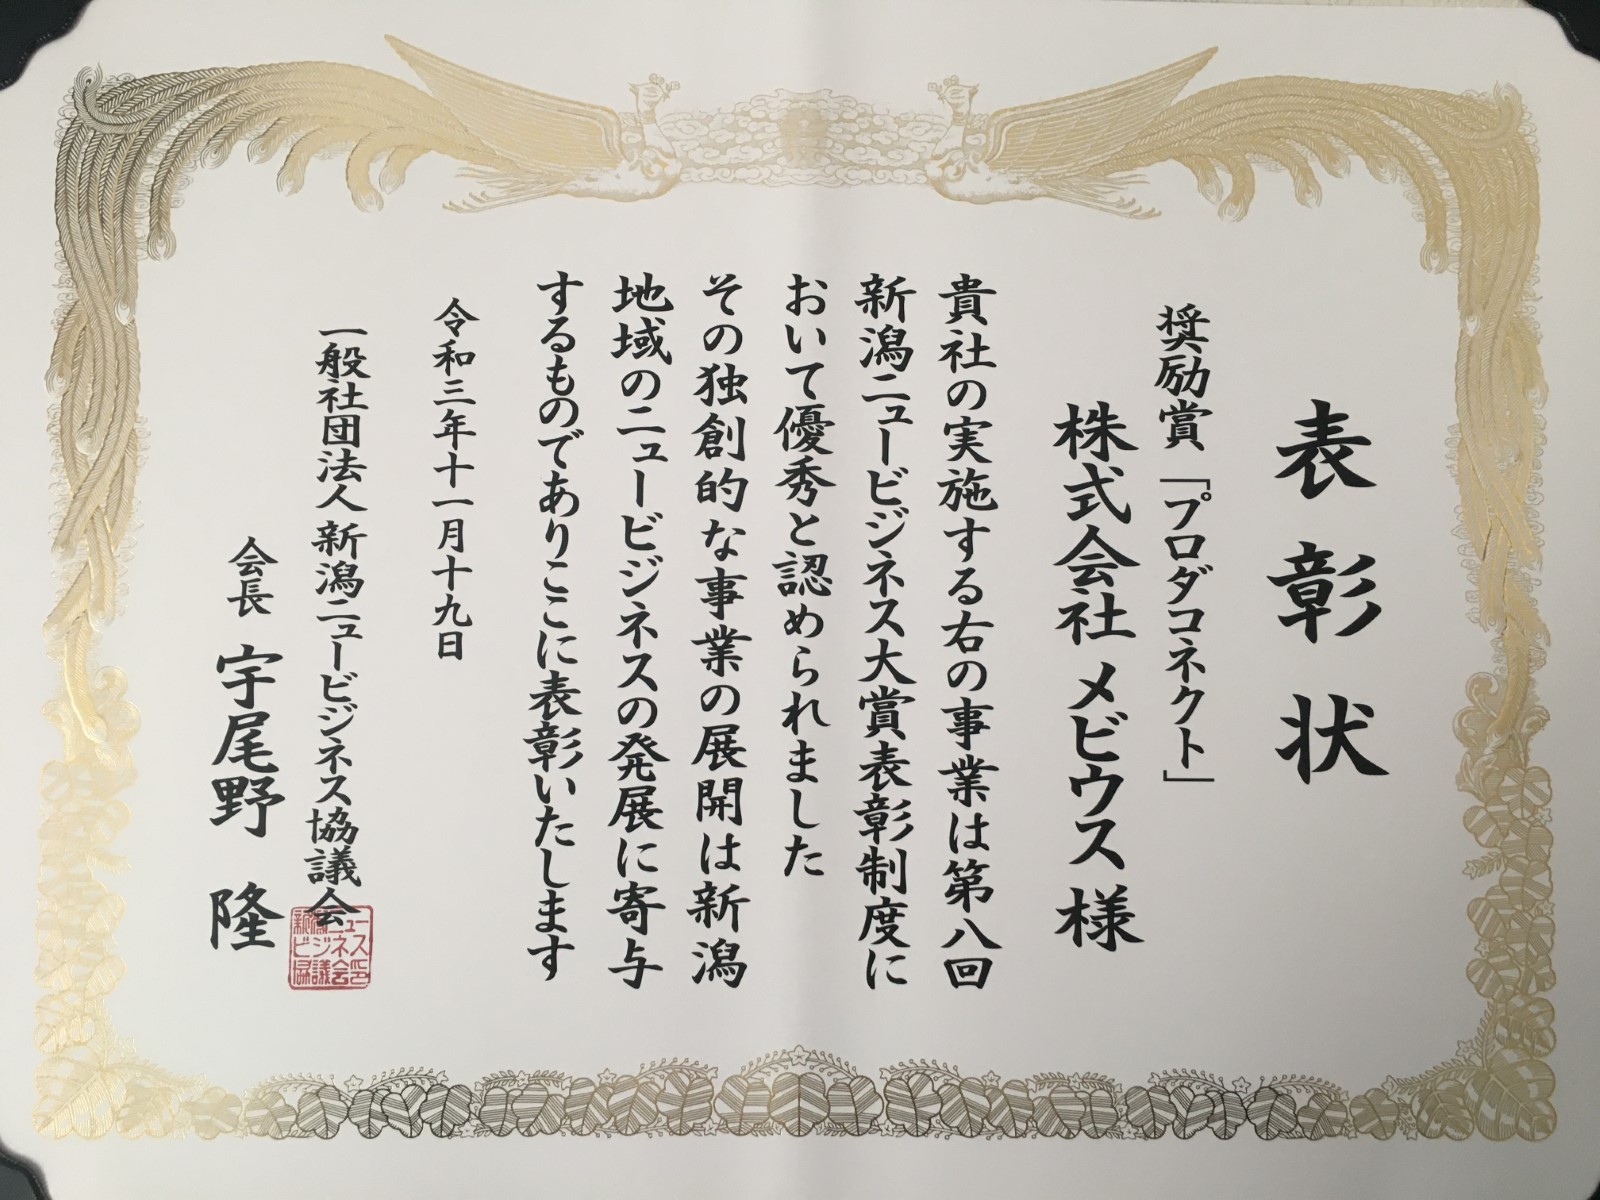 表彰状
奨励賞「プロダコネクト」
株式会社 メビウス 様
貴社の実施する右の事業は第八回
新潟ニュービジネス大賞表彰制度に
おいて優秀と認められました
その独創的な事業の展開は新潟
地域のニュービジネスの発展に寄与
するものでありここに表彰いたします
令和三年十一月十九日
一般社団法人 新潟ニュービジネス協議会
会長 宇尾野 隆
新潟ニュー
ビジネス
協議会印